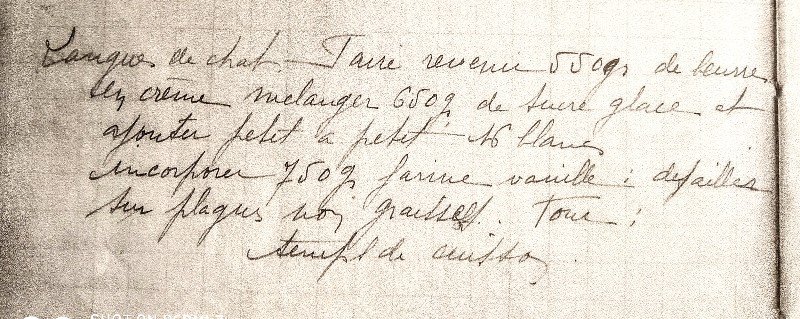 Langues de chat - Faire revenir 550gs de beurre
en crème mélanger 650g de sucre glace et
ajouter petit a petit 16 blancs
incorporer 750g farine vanille : défailler
sur plaques non graissés. Four :
temps de cuisson
SHOT ON